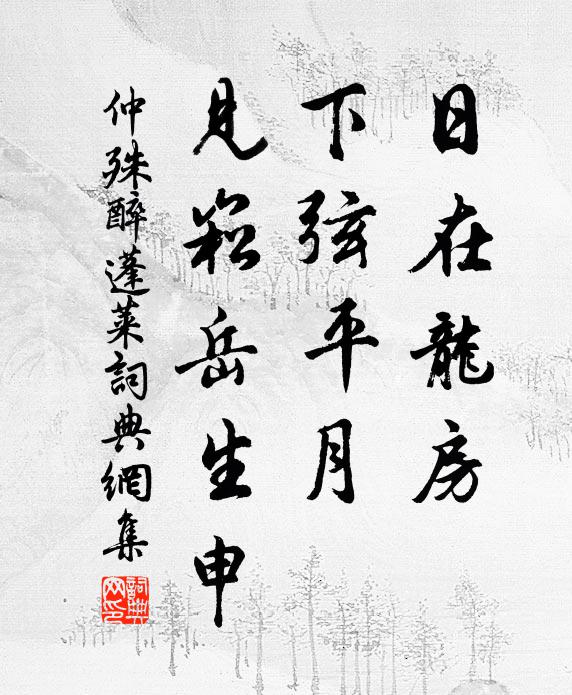 日在龍房
下弦平月
見崧岳生申
仲殊醉蓬萊詞典網集
詞典